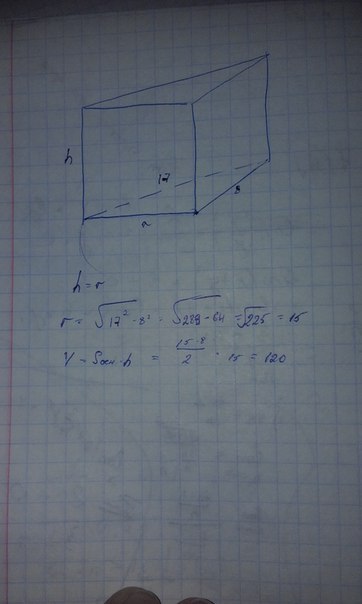 h
17
8
r
h = r
r = √(17² - 8²) = √(289 - 64) = √225 = 15
V = Sосн · h = (15 · 8)/2 · 15 = 120